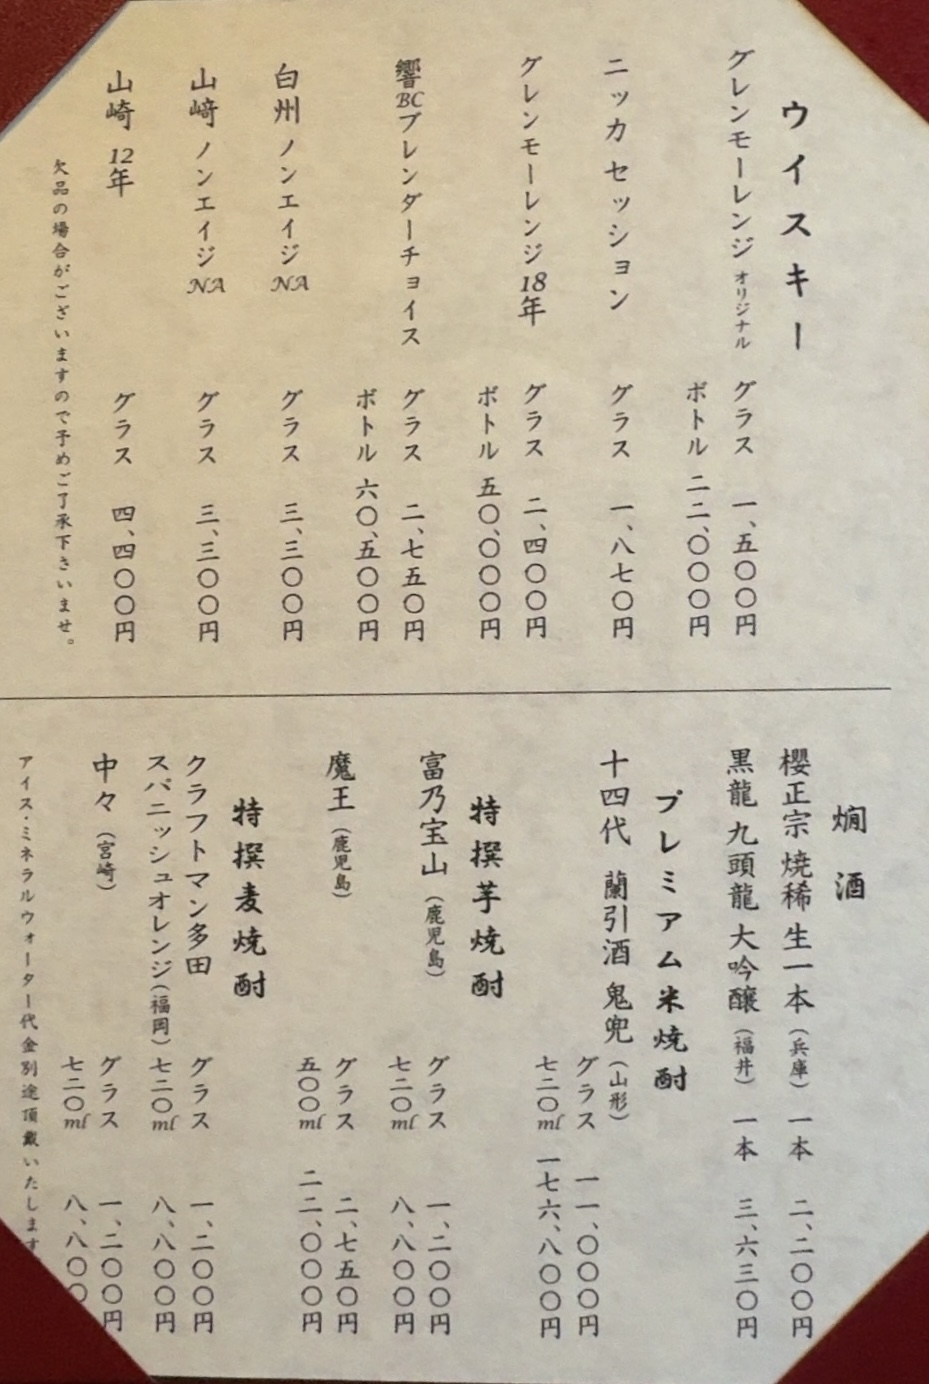 ウイスキー
グレンモーレンジ オリジナル グラス 一、五〇〇円
ボトル 二二、〇〇〇円
ニッカ セッション グラス 一、八七〇円
グレンモーレンジ 18年 グラス 二、四〇〇円
ボトル 五〇、〇〇〇円
響BCブレンダーチョイス グラス 二、七五〇円
ボトル 六〇、五〇〇円
白州 ノンエイジNA グラス 三、三〇〇円
山﨑 ノンエイジNA グラス 三、三〇〇円
山崎 12年 グラス 四、四〇〇円
欠品の場合がございますので予めご了承下さいませ。
燗酒
櫻正宗 焼稀 生一本(兵庫) 一本 二、二〇〇円
黒龍 九頭龍 大吟醸(福井) 一本 三、六三〇円
プレミアム米焼酎
十四代 蘭引酒 鬼兜(山形)
グラス 一一、〇〇〇円
七二〇ml 一七六、八〇〇円
特撰芋焼酎
富乃宝山(鹿児島) グラス 一、二〇〇円
七二〇ml 八、八〇〇円
魔王(鹿児島) グラス 二、七五〇円
五〇〇ml 二二、〇〇〇円
特撰麦焼酎
クラフトマン多田 グラス 一、二〇〇円
スパニッシュオレンジ(福岡) 七二〇ml 八、八〇〇円
中々(宮崎) グラス 一、二〇〇円
七二〇ml 八、八〇〇
アイス・ミネラルウォーター代金別途頂戴いたします